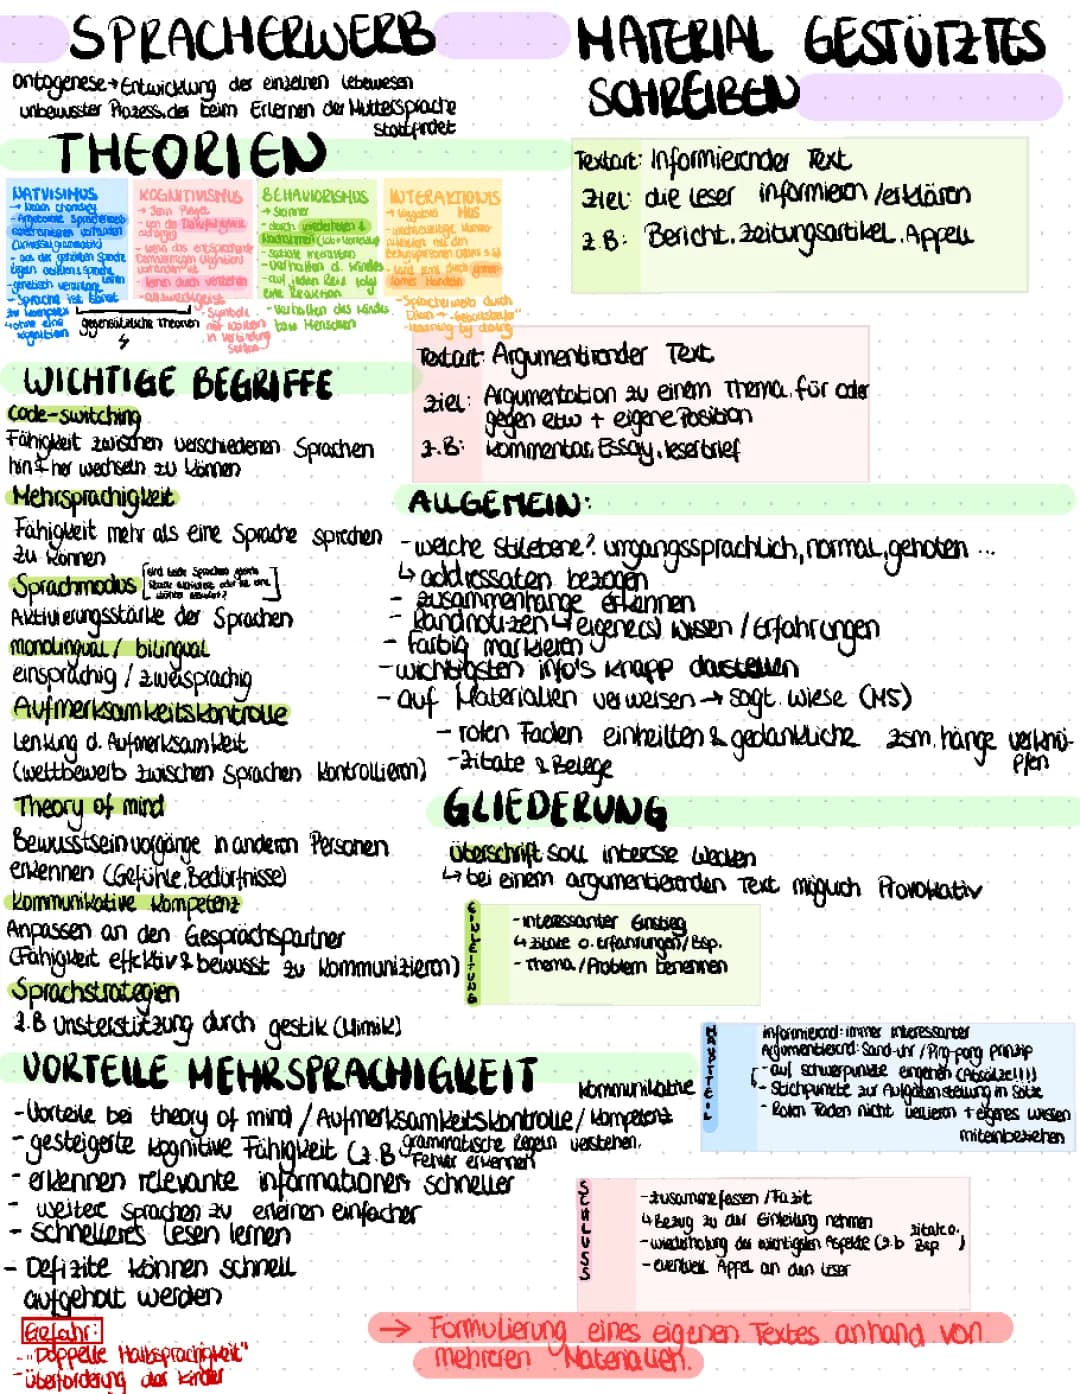 SPRACHERWERB
ontogenese → Entwicklung der einzelnen Lebewesen
unbewusster Prozess, der beim Erlernen der Muttersprache
stattfindet
THEORIEN
NATIVISMUS
→ Noam Chomsky
- Angeborene
vorhanden
(Universalgrammatik)
- aus der gehörten Sprache
- genetisch verankert
- Sprache ist
zu komplex
ohne eine
Kognition
KOGNITIVISMUS
→ Jean Piaget
- von der
- wenn das entsprechende
vorhanden ist
- lernen durch verstehen
- Symbole
mit Wörtern
in Verbindung
setzen
gegensätzliche Theorien
BEHAVIORISMUS
→ Skinner
- durch wiederholen &
Nachahmen
- soziale Interaktion
- Verhalten d. Kindes
- auf jeden Reiz folgt
eine Reaktion
- Verhalten des Kindes
bzw Menschen
INTERAKTIONIS
MUS
→ Wygotski
- Sprache wird durch
- learning by doing
WICHTIGE BEGRIFFE
Code-switching
Fähigkeit zwischen verschiedenen Sprachen
hin & her wechseln zu können
Mehrsprachigkeit
Fähigkeit mehr als eine Sprache sprechen
zu können
Sprachmodus
[sind beide Sprachen
oder ist eine
]
Aktivierungsstärke der Sprachen
monolingual / bilingual
einsprachig / zweisprachig
Aufmerksamkeitskontrolle
Lenkung d. Aufmerksamkeit
(Wettbewerb zwischen Sprachen kontrollieren)
Theory of mind
Bewusstseinvorgänge in anderen Personen
erkennen (Gefühle, Bedürfnisse)
kommunikative Kompetenz
Anpassen an den Gesprächspartner
(Fähigkeit effektiv & bewusst zu kommunizieren)
Sprachstrategien
z.B Unsterstützung durch gestik (Mimik)
VORTEILE MEHRSPRACHIGKEIT
- Vorteile bei theory of mind / Aufmerksamkeitskontrolle / kommunikative Kompetenz
- gesteigerte kognitive Fähigkeit (z.B grammatische Regeln verstehen,
Fehler erkennen
- erkennen relevante informationen schneller
- weitere Sprachen zu erlernen einfacher
- schnelleres lesen lernen
- Defizite können schnell
aufgeholt werden
Gefahr:
- "Doppelte Halbsprachigkeit"
- überforderung der Kinder
MATERIAL GESTÜTZTES
SCHREIBEN
Textart: Informierender Text
Ziel: die Leser informieren / erklären
z.B: Bericht, Zeitungsartikel, Appell
Textart: Argumentierender Text
Ziel: Argumentation zu einem Thema, für oder
gegen etw + eigene Position
z.B: Kommentar, Essay, leserbrief
ALLGEMEIN:
- welche Stilebene? umgangssprachlich, normal, gehoben ...
↳ addressaten bezogen
- zusammenhänge erkennen
- Randnotizen ↳ eigene(s) wissen / Erfahrungen
- Farbig markieren
- wichtigsten info's knapp darstellen
- auf Materialien verweisen → sagt Wiese (M5)
- roten Faden einhalten & gedankliche zsm.hänge verknü-
pfen
- Zitate & Belege
GLIEDERUNG
überschrift soll interesse wecken
↳ bei einem argumentierenden Text möglich Provokativ
EINLEITUNG
- interessanter Einstieg
↳ zitate o. Erfahrungen / Bsp.
- Thema / Problem benennen
HAUPTTEIL
informierend: immer interessanter
Argumentierend: Sand-uhr / Ping-pong prinzip
- auf schwerpunkte eingehen (Absätze!!!!)
- Stichpunkte zur Aufgabenstellung in Sätze
- Roten Faden nicht verlieren + eigenes wissen
miteinbeziehen
SCHLUSS
- zusammenfassen / Fazit
↳ Bezug zu der Einleitung nehmen
- wiederholung des wichtigsten Aspekte (z.b zitate o. Bsp)
- eventuell Appel an den Leser
→ Formulierung eines eigenen Textes anhand von
mehreren Materialien.